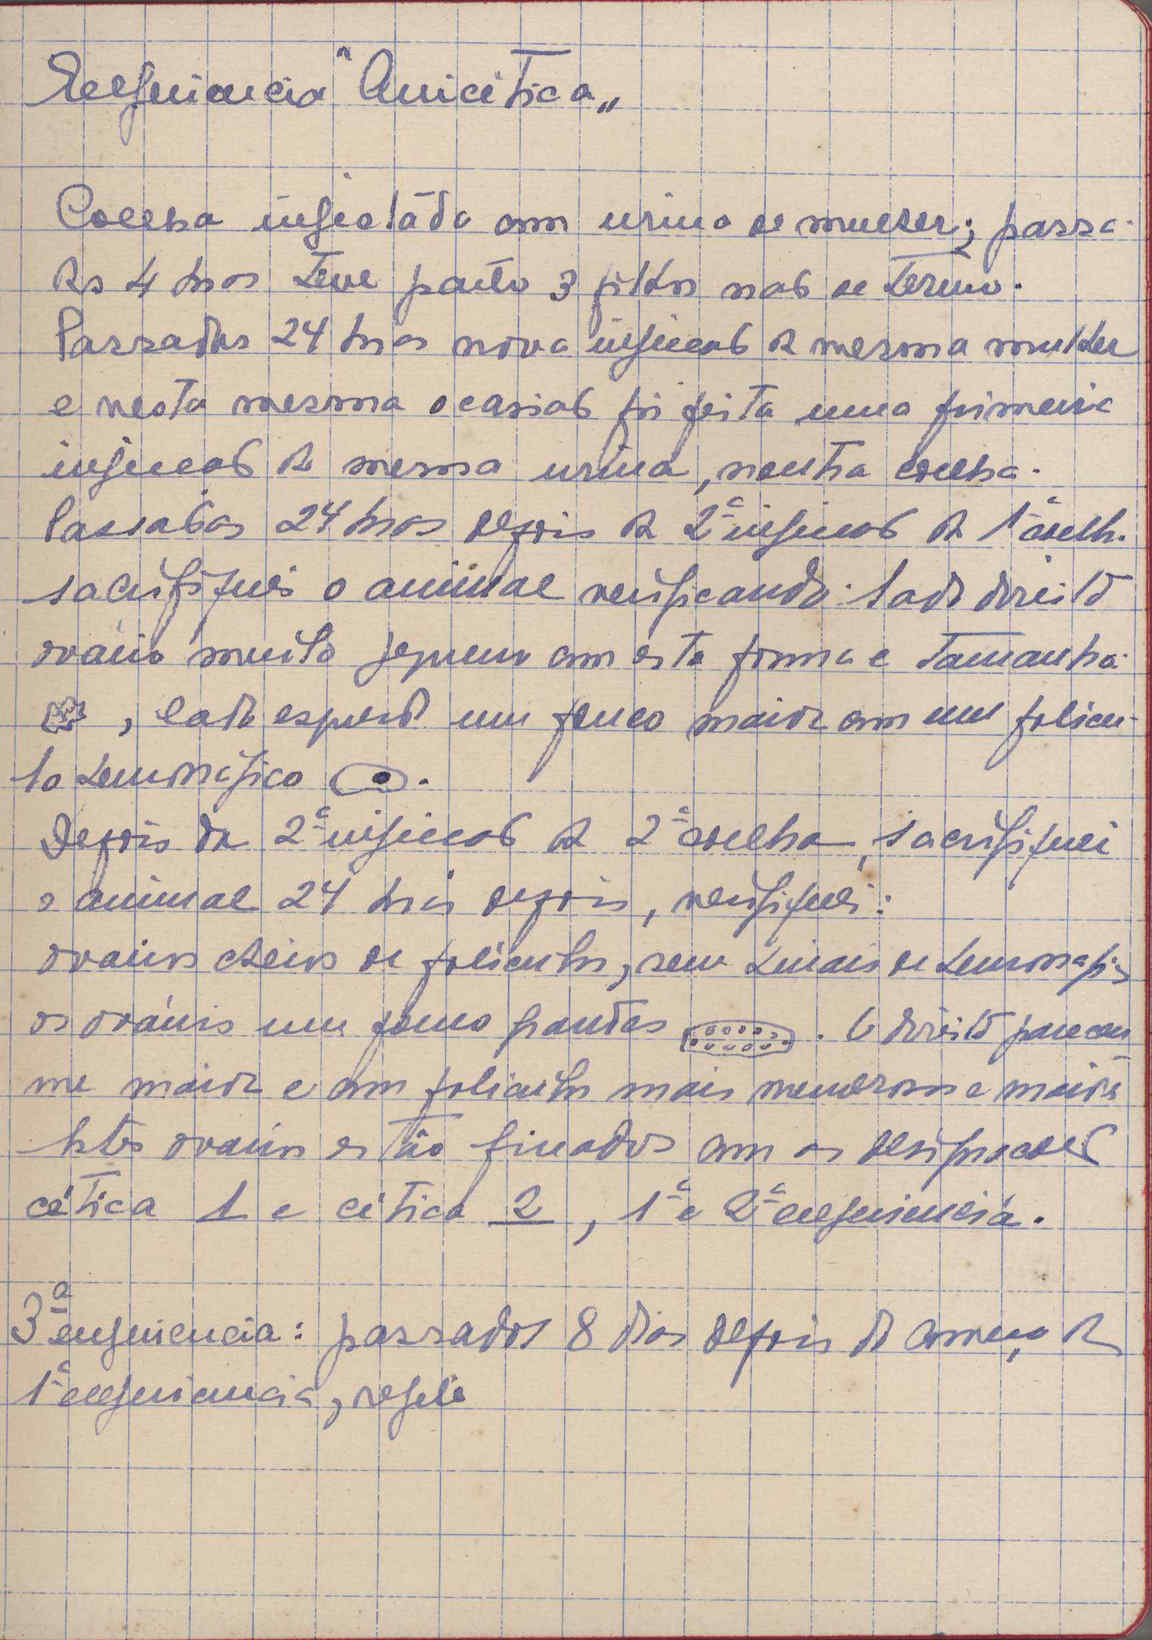 Experiencia "Anicética"
Coelha injectada com urina de mulher; passa-
das 4 horas teve parto 3 filhos não de termo.
Passadas 24 horas nova injecção da mesma mulher
e nesta mesma ocasião foi feita uma primeira
injecção da mesma urina, noutra coelha.
Passadas 24 horas depois da 2ª injecção da 1ª coelha
sacrifiquei o animal verificando: lado direito
ovário muito pequeno com esta forma e tamanho
, lado esquerdo um pouco maior com um folicu-
lo hemorrágico .
Depois da 2ª injecção da 2ª coelha, sacrifiquei
o animal 24 horas depois, verifiquei:
ovários cheios de foliculos, sem sinais de hemorragia
os ovários um pouco grandes . O direito pareceu
me maior e com foliculos mais numerosos e maiores
Estes ovários estão fixados com as designações
cética 1 e cética 2, 1ª e 2ª experiencia.
3ª experiencia: passados 8 dias depois do começo da
1ª experiencia, repete